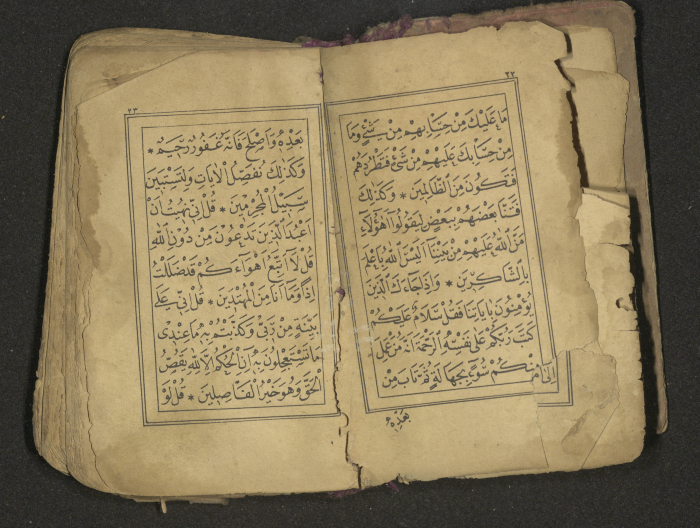 ٢٢
مَا عَلَيْكَ مِنْ حِسَابِهِمْ مِنْ شَيْءٍ وَمَا
مِنْ حِسَابِكَ عَلَيْهِمْ مِنْ شَيْءٍ فَتَطْرُدَهُمْ
فَتَكُونَ مِنَ الظَّالِمِينَ * وَكَذٰلِكَ
فَتَنَّا بَعْضَهُمْ بِبَعْضٍ لِيَقُولُوا أَهٰؤُلَاءِ
مَنَّ اللّٰهُ عَلَيْهِمْ مِنْ بَيْنِنَا أَلَيْسَ اللّٰهُ بِأَعْلَمَ
بِالشَّاكِرِينَ * وَإِذَا جَاءَكَ الَّذِينَ
يُؤْمِنُونَ بِآيَاتِنَا فَقُلْ سَلَامٌ عَلَيْكُمْ
كَتَبَ رَبُّكُمْ عَلَى نَفْسِهِ الرَّحْمَةَ أَنَّهُ مَنْ عَمِلَ
مِنْكُمْ سُوءًا بِجَهَالَةٍ ثُمَّ تَابَ مِنْ
بَعْدِهِ
٢٣
بَعْدِهِ وَأَصْلَحَ فَأَنَّهُ غَفُورٌ رَحِيمٌ *
وَكَذٰلِكَ نُفَصِّلُ الْآيَاتِ وَلِتَسْتَبِينَ
سَبِيلُ الْمُجْرِمِينَ * قُلْ إِنِّي نُهِيتُ أَنْ
أَعْبُدَ الَّذِينَ تَدْعُونَ مِنْ دُونِ اللّٰهِ
قُلْ لَا أَتَّبِعُ أَهْوَاءَكُمْ قَدْ ضَلَلْتُ
إِذًا وَمَا أَنَا مِنَ الْمُهْتَدِينَ * قُلْ إِنِّي عَلَى
بَيِّنَةٍ مِنْ رَبِّي وَكَذَّبْتُمْ بِهِ مَا عِنْدِي
مَا تَسْتَعْجِلُونَ بِهِ إِنِ الْحُكْمُ إِلَّا لِلّٰهِ يَقُصُّ
الْحَقَّ وَهُوَ خَيْرُ الْفَاصِلِينَ * قُلْ لَوْ